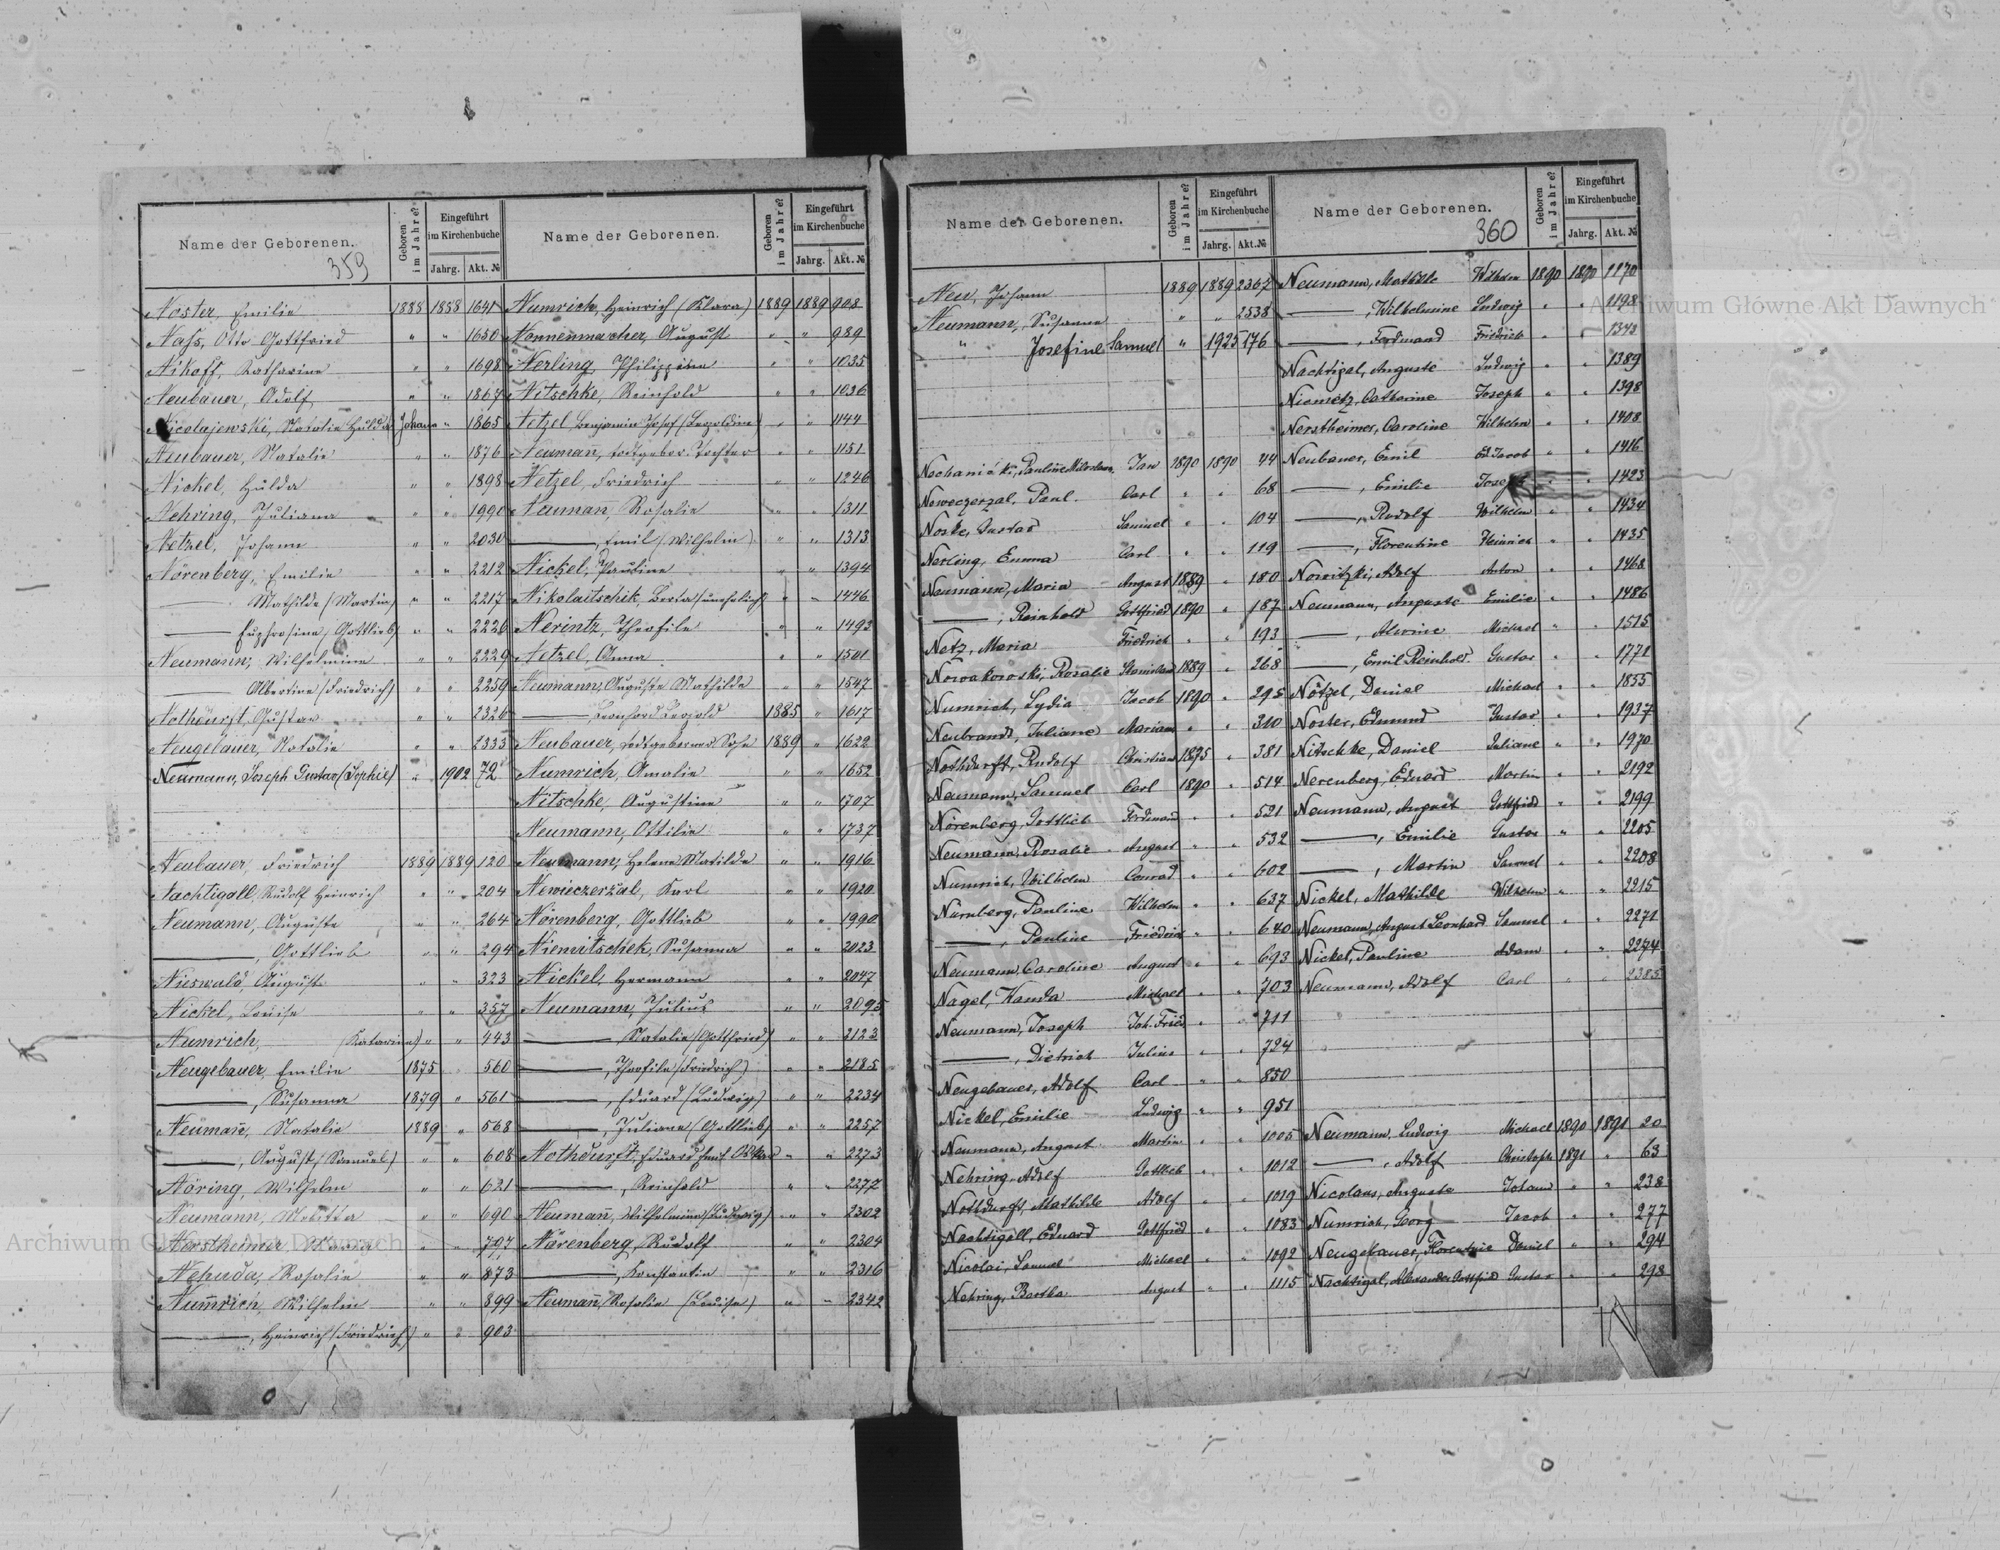 Name der Geborenen.
359
Geboren im Jahre?
Eingeführt im Kirchenbuche
Jahrg. Akt. №
Noster, Emilie 1888 1888 1641
Nass, Otto Gottfried " " 1650
Nikoff, Katharina " " 1698
Neubauer, Adolf " " 1864
Nicolajewski, Natalie Hulda Johann " 1865
Neubauer, Natalie " " 1876
Nickel, Hulda " " 1898
Nehring, Juliana " " 1990
Netzel, Johann " " 2030
Nörenberg, Emilie " " 2212
——— Mathilde (Martin) " " 2217
——— Euphrosine (Gottlieb) " " 2226
Neumann, Wilhelmine " " 2229
——— Albertine (Friedrich) " " 2259
Nothdurft, Gustav " " 2326
Neugebauer, Natalie " " 2333
Neumann, Joseph Gustav (Sophie) " 1902 72
Neubauer, Friedrich 1889 1889 120
Nachtigall, Rudolf Heinrich " " 204
Neumann, Auguste " " 264
———, Gottlieb " " 294
Nieswald, Auguste " " 323
Nickel, Louise " " 357
Numrich, Katarina) " " 443
Neugebauer, Emilie 1875 " 560
———, Susanna 1879 " 561
Neumañ, Natalie 1889 " 568
———, August (Samuel) " " 608
Nöring, Wilhelm " " 621
Neumann, Melitta " " 690
Nerstheimer, Maria " " 707
Nehuda, Rosalie " " 873
Num̄rich, Wilhelm " " 899
———, Heinrich (Friedrich) " " 903
Name der Geborenen.
Geboren im Jahre?
Eingeführt im Kirchenbuche
Jahrg. Akt. №
Numrich, Heinrich (Klara) 1889 1889 908
Nonnenmacher, August " " 989
Nerling, Philippine " " 1035
Nitschke, Reinhold " " 1036
Netzel Benjamin Josef (Leopoldine) " " 1144
Neuman, todtgebor. Tochter " " 1151
Netzel, Friedrich " " 1246
Neuman, Rosalie " " 1311
———, Emil (Wilhelm) " " 1313
Nickel, Pauline " " 1394
Nikolaitschik, Berta (unehelich) " " 1446
Nerintz, Theofile " " 1493
Netzel, Anna " " 1501
Neumann, Auguste Mathilde " " 1547
——— Leonhard Leopold 1885 " 1617
Neubauer, todtgeborener Sohn 1889 " 1622
Numrich, Amalie " " 1652
Nitschke, Augustine " " 1707
Neumann, Ottilie " " 1737
Neumann, Helene Matilda " " 1916
Newieczerzal, Karl " " 1920
Nörenberg, Gottlieb " " 1990
Niemitschek, Susanna " " 2023
Nickel, Hermann " " 2047
Neumann, Julius " " 2095
——— Natalie (Gottfried) " " 2123
———, Theofile (Friedrich) " " 2185
———, Eduard (Ludwig) " " 2234
———, Juliane (Gottlieb) " " 2257
Nothdurft, Eduard Emil Oskar " " 2273
———, Reinhold " " 2277
Neumañ, Wilhelmine (Ludwig) " " 2302
Nörenberg, Rudolf " " 2304
———, Konstantin " " 2316
Neumañ, Rosalie (Louise) " " 2342
Name der Geborenen.
Geboren im Jahre?
Eingeführt im Kirchenbuche
Jahrg. Akt. №
Neu, Johann 1889 1889 2367
Neumann, Susanne " " 2538
" Josefine Samuel " 1925 176
Nechanicki, Pauline Miloslawa Jan 1890 1890 44
Neweczerzal, Paul Carl " " 68
Noske, Gustav Samuel " " 104
Nerling, Emma Carl " " 119
Neumann, Maria August 1889 " 180
———, Reinhold Gottfried 1890 " 187
Netz, Maria Friedrich " " 193
Nowakowski, Rosalie Stanislaus 1889 " 268
Numrich, Lydia Jacob 1890 " 295
Neubrandt, Juliane Mariam " " 310
Nothdurft, Rudolf Christian 1875 " 381
Neumann, Samuel Carl 1890 " 514
Nörenberg, Gottlieb Ferdinand " " 521
Neumann, Rosalie August " " 532
Numrich, Wilhelm Conrad " " 602
Nürnberg, Pauline Wilhelm " " 637
———, Pauline Friedrich " " 640
Neumann, Caroline August " " 693
Nagel, Wanda Michael " " 703
Neumann, Joseph Joh. Fried " " 711
———, Dietrich Julius " " 724
Neugebauer, Adolf Carl " " 850
Nickel, Emilie Ludwig " " 951
Neumann, August Martin " " 1005
Nehring, Adolf Gottlieb " " 1012
Nothdurft, Mathilde Adolf " " 1019
Nachtigall, Eduard Gottfried " " 1083
Nicolai, Samuel Michael " " 1092
Nehring, Bertha August " " 1115
Name der Geborenen.
360
Geboren im Jahre?
Eingeführt im Kirchenbuche
Jahrg. Akt. №
Neumann, Mathilde Wilhelm 1890 1890 1170
———, Wilhelmine Ludwig " " 1198
———, Ferdinand Friedrich " " 1343
Nachtigal, Auguste Ludwig " " 1389
Niemetz, Catharine Joseph " " 1398
Nerstheimer, Caroline Wilhelm " " 1408
Neubauer, Emil Ed. Jacob " " 1416
———, Emilie Josef " " 1423
———, Rudolf Wilhelm " " 1434
———, Florentine Heinrich " " 1435
Nowitzki, Adolf Anton " " 1468
Neumann, Auguste Emilie " " 1486
———, Alwine Michael " " 1515
———, Emil Reinhold Gustav " " 1771
Nötzel, Daniel Michael " " 1855
Noster, Edmund Gustav " " 1937
Nitschke, Daniel Juliane " " 1970
Nerenberg, Eduard Martin " " 2192
Neumann, August Gottfried " " 2199
———, Emilie Gustav " " 2205
———, Martin Samuel " " 2208
Nickel, Mathilde Wilhelm " " 2215
Neumann, August Leonhard Samuel " " 2271
Nickel, Pauline Adam " " 2274
Neumann, Adolf Carl " " 2385
Neumann, Ludwig Michael 1890 1891 20
———, Adolf Christoph 1891 " 63
Nicolaus, Auguste Johann " " 238
Numrich, Georg Jacob " " 277
Neugebauer, Florentine Daniel " " 294
Nachtigal, Alexander Gottfried Gustav " " 298
Archiwum Główne Akt Dawnych
Archiwum Główne Akt Dawnych